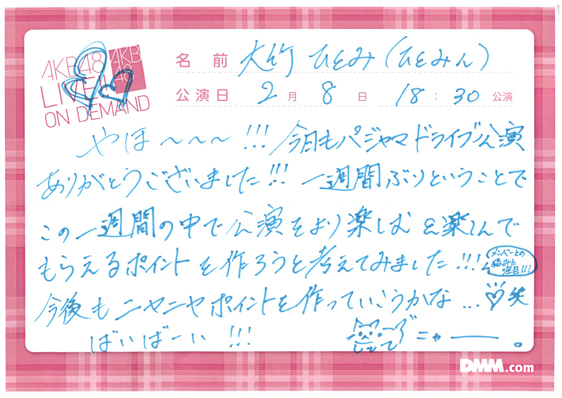 AKB48
LIVE!!
ON DEMAND
AKB48
名前 大竹 ひとみ (ひとみん)
公演日 2月 8日 18:30 公演
やほ～～～!!! 今日もパジャマドライブ公演
ありがとうございました!!! 一週間ぶりということで
この一週間の中で公演をより楽しむ&楽しんで
もらえるポイントを作ろうと考えてみました!!!
メンバーとの
絡みに
注目!!!
今後もニヤニヤポイントを作っていこうかな...♡笑
ばいばーい!!! ニャー――。
DMM.com